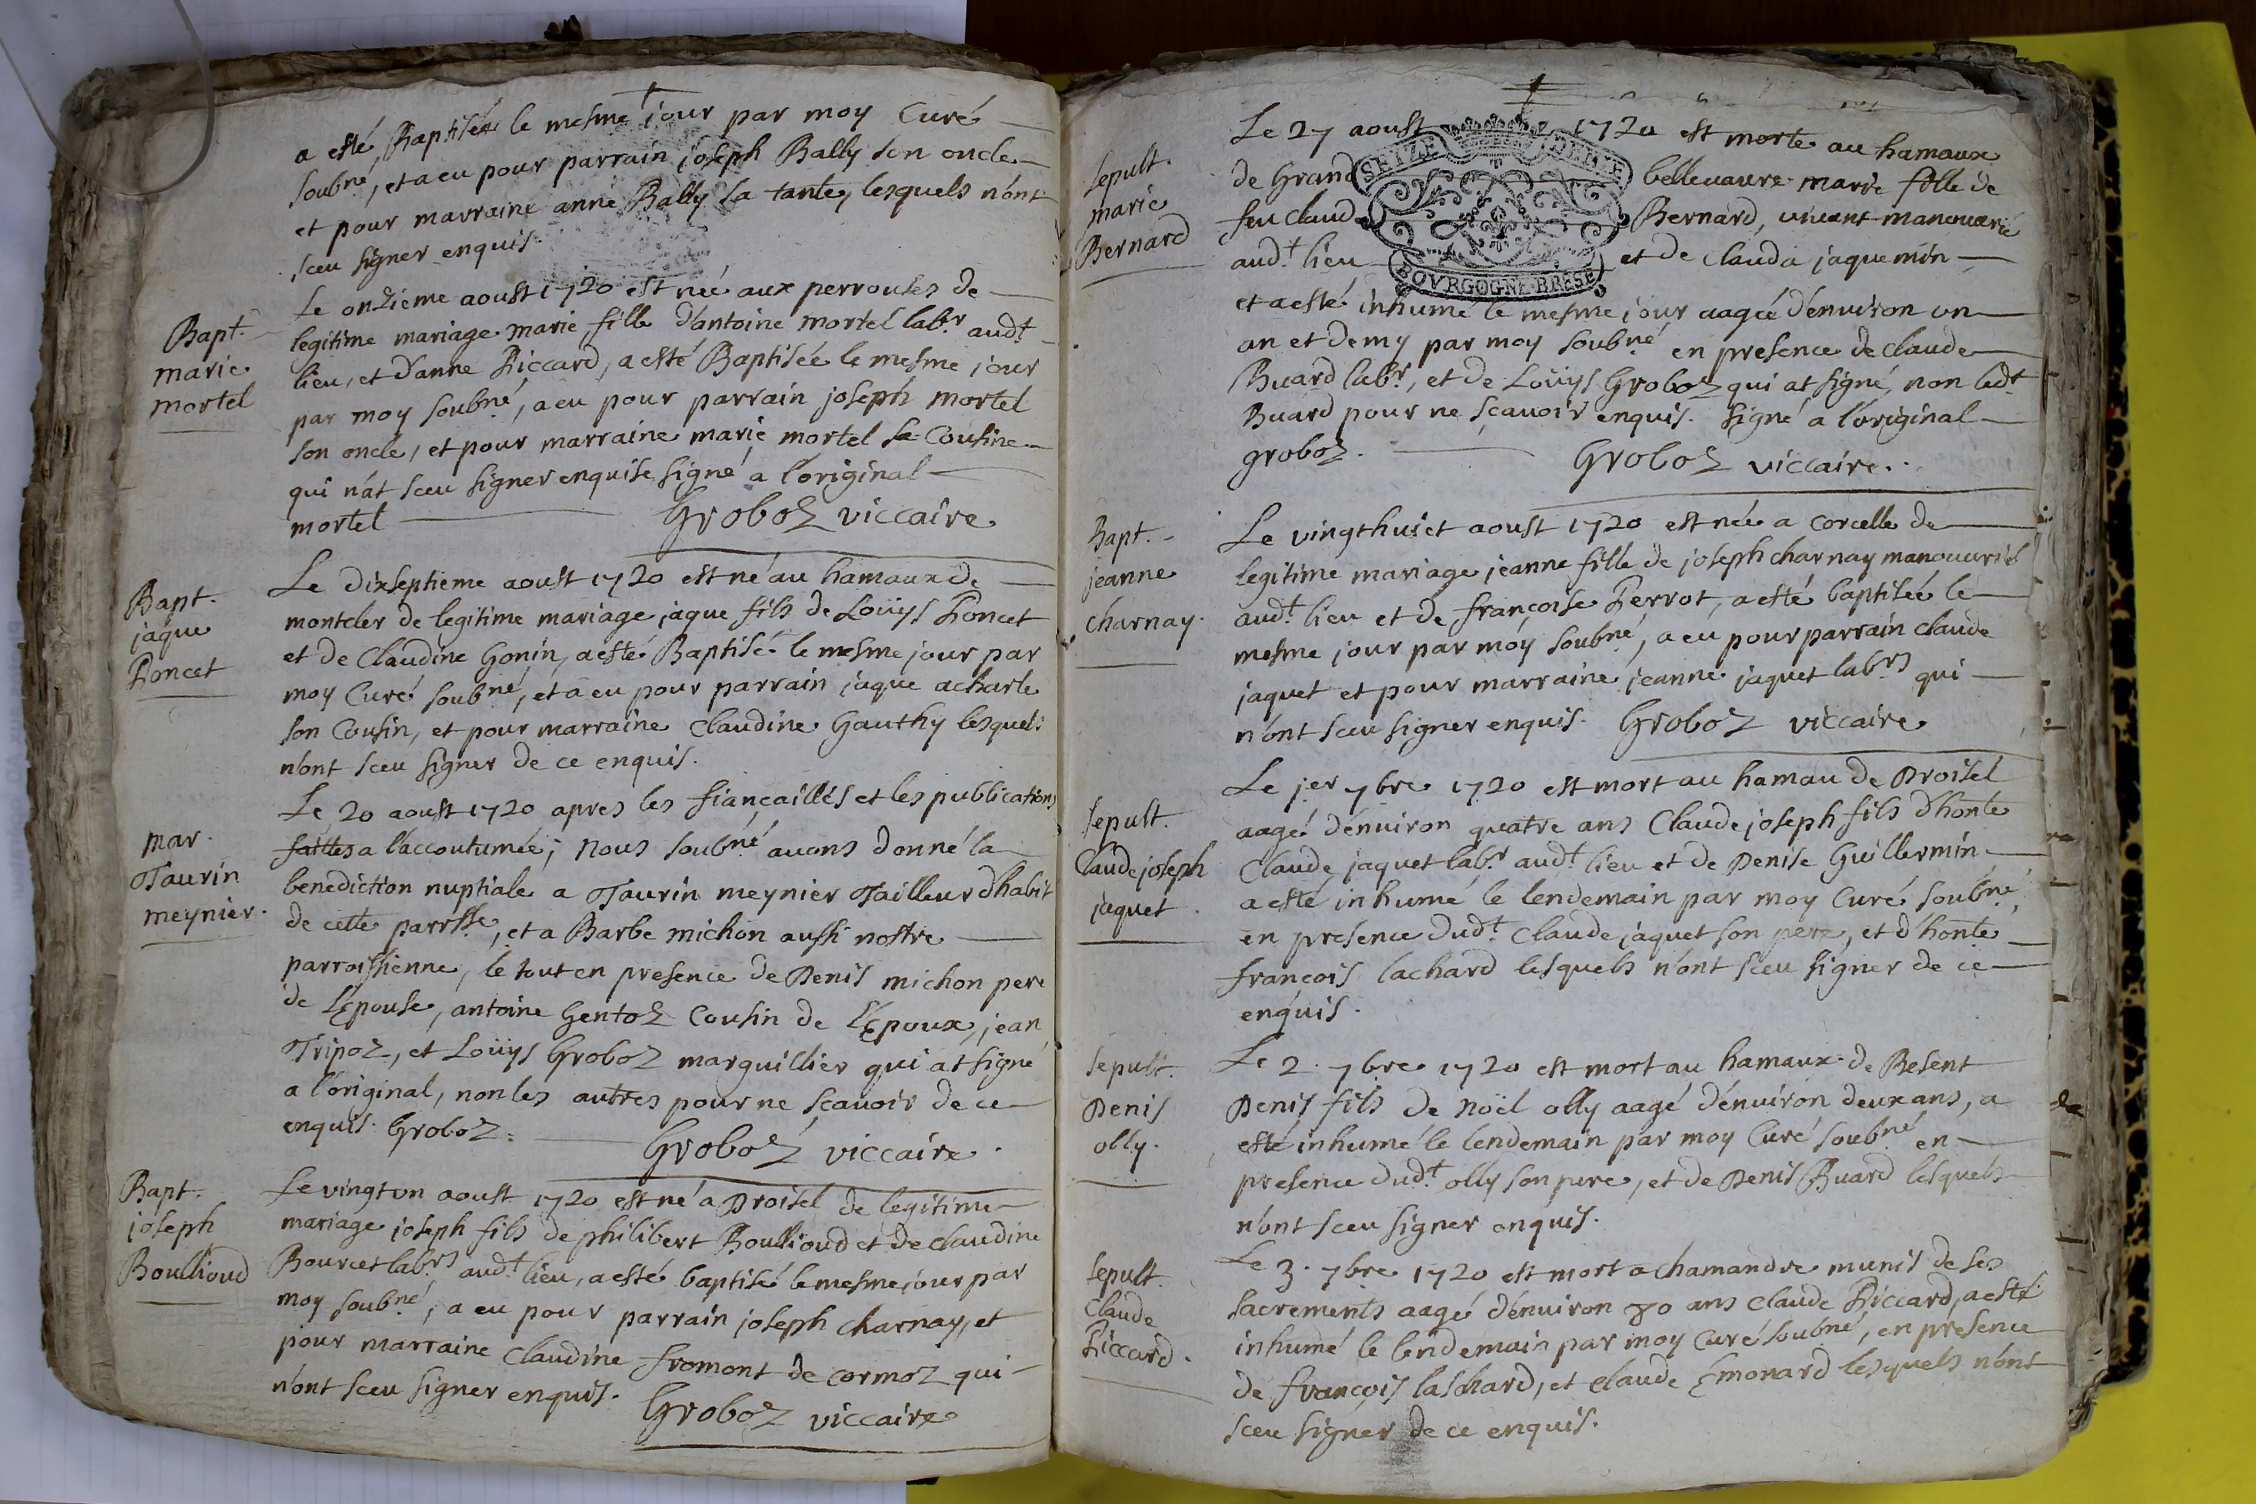 a esté Baptisée le mesme jour par moy Curé
soubné, et a eu pour parrain joseph Bally son oncle
et pour marraine anne Bally sa tante, lesquels n'ont
sceu signer enquis.
Bapt.
marie
mortel
Le onzieme aoust 1720 est née aux perrouses de
legitime mariage marie, fille d'antoine mortel labr. audt.
lieu, et d'anne Piccard, a esté Baptisée le mesme jour
par moy soubné, a eu pour parrain joseph mortel
son oncle, et pour marraine marie mortel sa Cousine
qui n'at sceu signer enquise signé a l'original
mortel Groboz viccaire
Bapt.
jaque
Poncet
Le dixseptieme aoust 1720 est né au hamaux de
montcler de legitime mariage jaque fils de Loüys Poncet
et de Claudine Gonin, a esté Baptisé le mesme jour par
moy Curé soubné, et a eu pour parrain jaque acharle
son Cousin, et pour marraine Claudine Gauthy lesquels
n'ont sceu signer de ce enquis.
mar.
Taurin
meynier.
Le 20 aoust 1720 apres les fiançailles et les publications
faittes a l'accoutumée; Nous soubné avons donné la
benediction nuptiale a Taurin meynier Tailleur d'habit
de cette parrsse, et a Barbe michon aussi nostre
parroissienne, le tout en presence de Denis michon pere
de l'Epouse, antoine Gentoz Cousin de l'Epoux, jean
Tripoz, et Loüys Groboz marguillier qui at signé
a l'original, non les autres pour ne sçavoir de ce
enquis. Groboz. Groboz viccaire.
Bapt.
joseph
Boullioud
Le vingt un aoust 1720 est né a Droisel de legitime
mariage joseph fils de philibert Boullioud et de claudine
Bourcet labrs audt. lieu, a esté baptisé le mesme jour par
moy soubné, a eu pour parrain joseph charnay, et
pour marraine claudine fromont de cormoz qui
n'ont sceu signer enquis. Groboz viccaire
sepult.
marie
Bernard
Le 27 aoust 1720 est morte au hamaux
de Grand bellevavre marie fille de
feu Claud Bernard, vivant manouvrié
audt. lieu et de clauda jaquemin
SEIZE DENIE
BOVRGOGNE BRESSE
et a esté inhumé le mesme jour aagée d'enuiron un
an et demy par moy soubné en presence de claude
Buard labr, et de Loüys Groboz qui at signé, non ledt.
Buard pour ne sçavoir enquis. signé a l'original
groboz. Groboz viccaire.
Bapt.
jeanne
charnay.
Le vingthuict aoust 1720 est née a corcelle de
legitime mariage jeanne fille de joseph charnay manouvrier
audt. lieu et de françoise Perrot, a esté baptisée le
mesme jour par moy soubné, a eu pour parrain claude
jaquet et pour marraine jeanne jaquet labrs qui
n'ont sceu signer enquis. Groboz viccaire
sepult.
Claude joseph
jaquet.
Le jer 7bre 1720 est mort au hamau de Droisel
aagé d'enuiron quatre ans Claude joseph fils d'honte
Claude jaquet labr. audt. lieu et de Denise Guillermin
a esté inhumé le lendemain par moy Curé soubné,
en presence dudt. Claude jaquet son pere, et d'honte
françois lachard lesquels n'ont sceu signer de ce
enquis.
sepult.
Denis
olly.
Le 2. 7bre 1720 est mort au hamaux de Besent
Denis fils de Noël olly aagé d'enuiron deux ans, a
esté inhumé le lendemain par moy Curé soubné en
presence dudt. olly son pere, et de Denis Buard lesquels
n'ont sceu signer enquis.
sepult.
Claude
Piccard.
Le 3. 7bre 1720 est mort a chamandre munis de ses
sacrements aagé d'enuiron 80 ans claude Piccard, a esté
inhumé le lendemain par moy Curé soubné, en presence
de françois laschard, et claude Emonard lesquels n'ont
sceu signer de ce enquis.